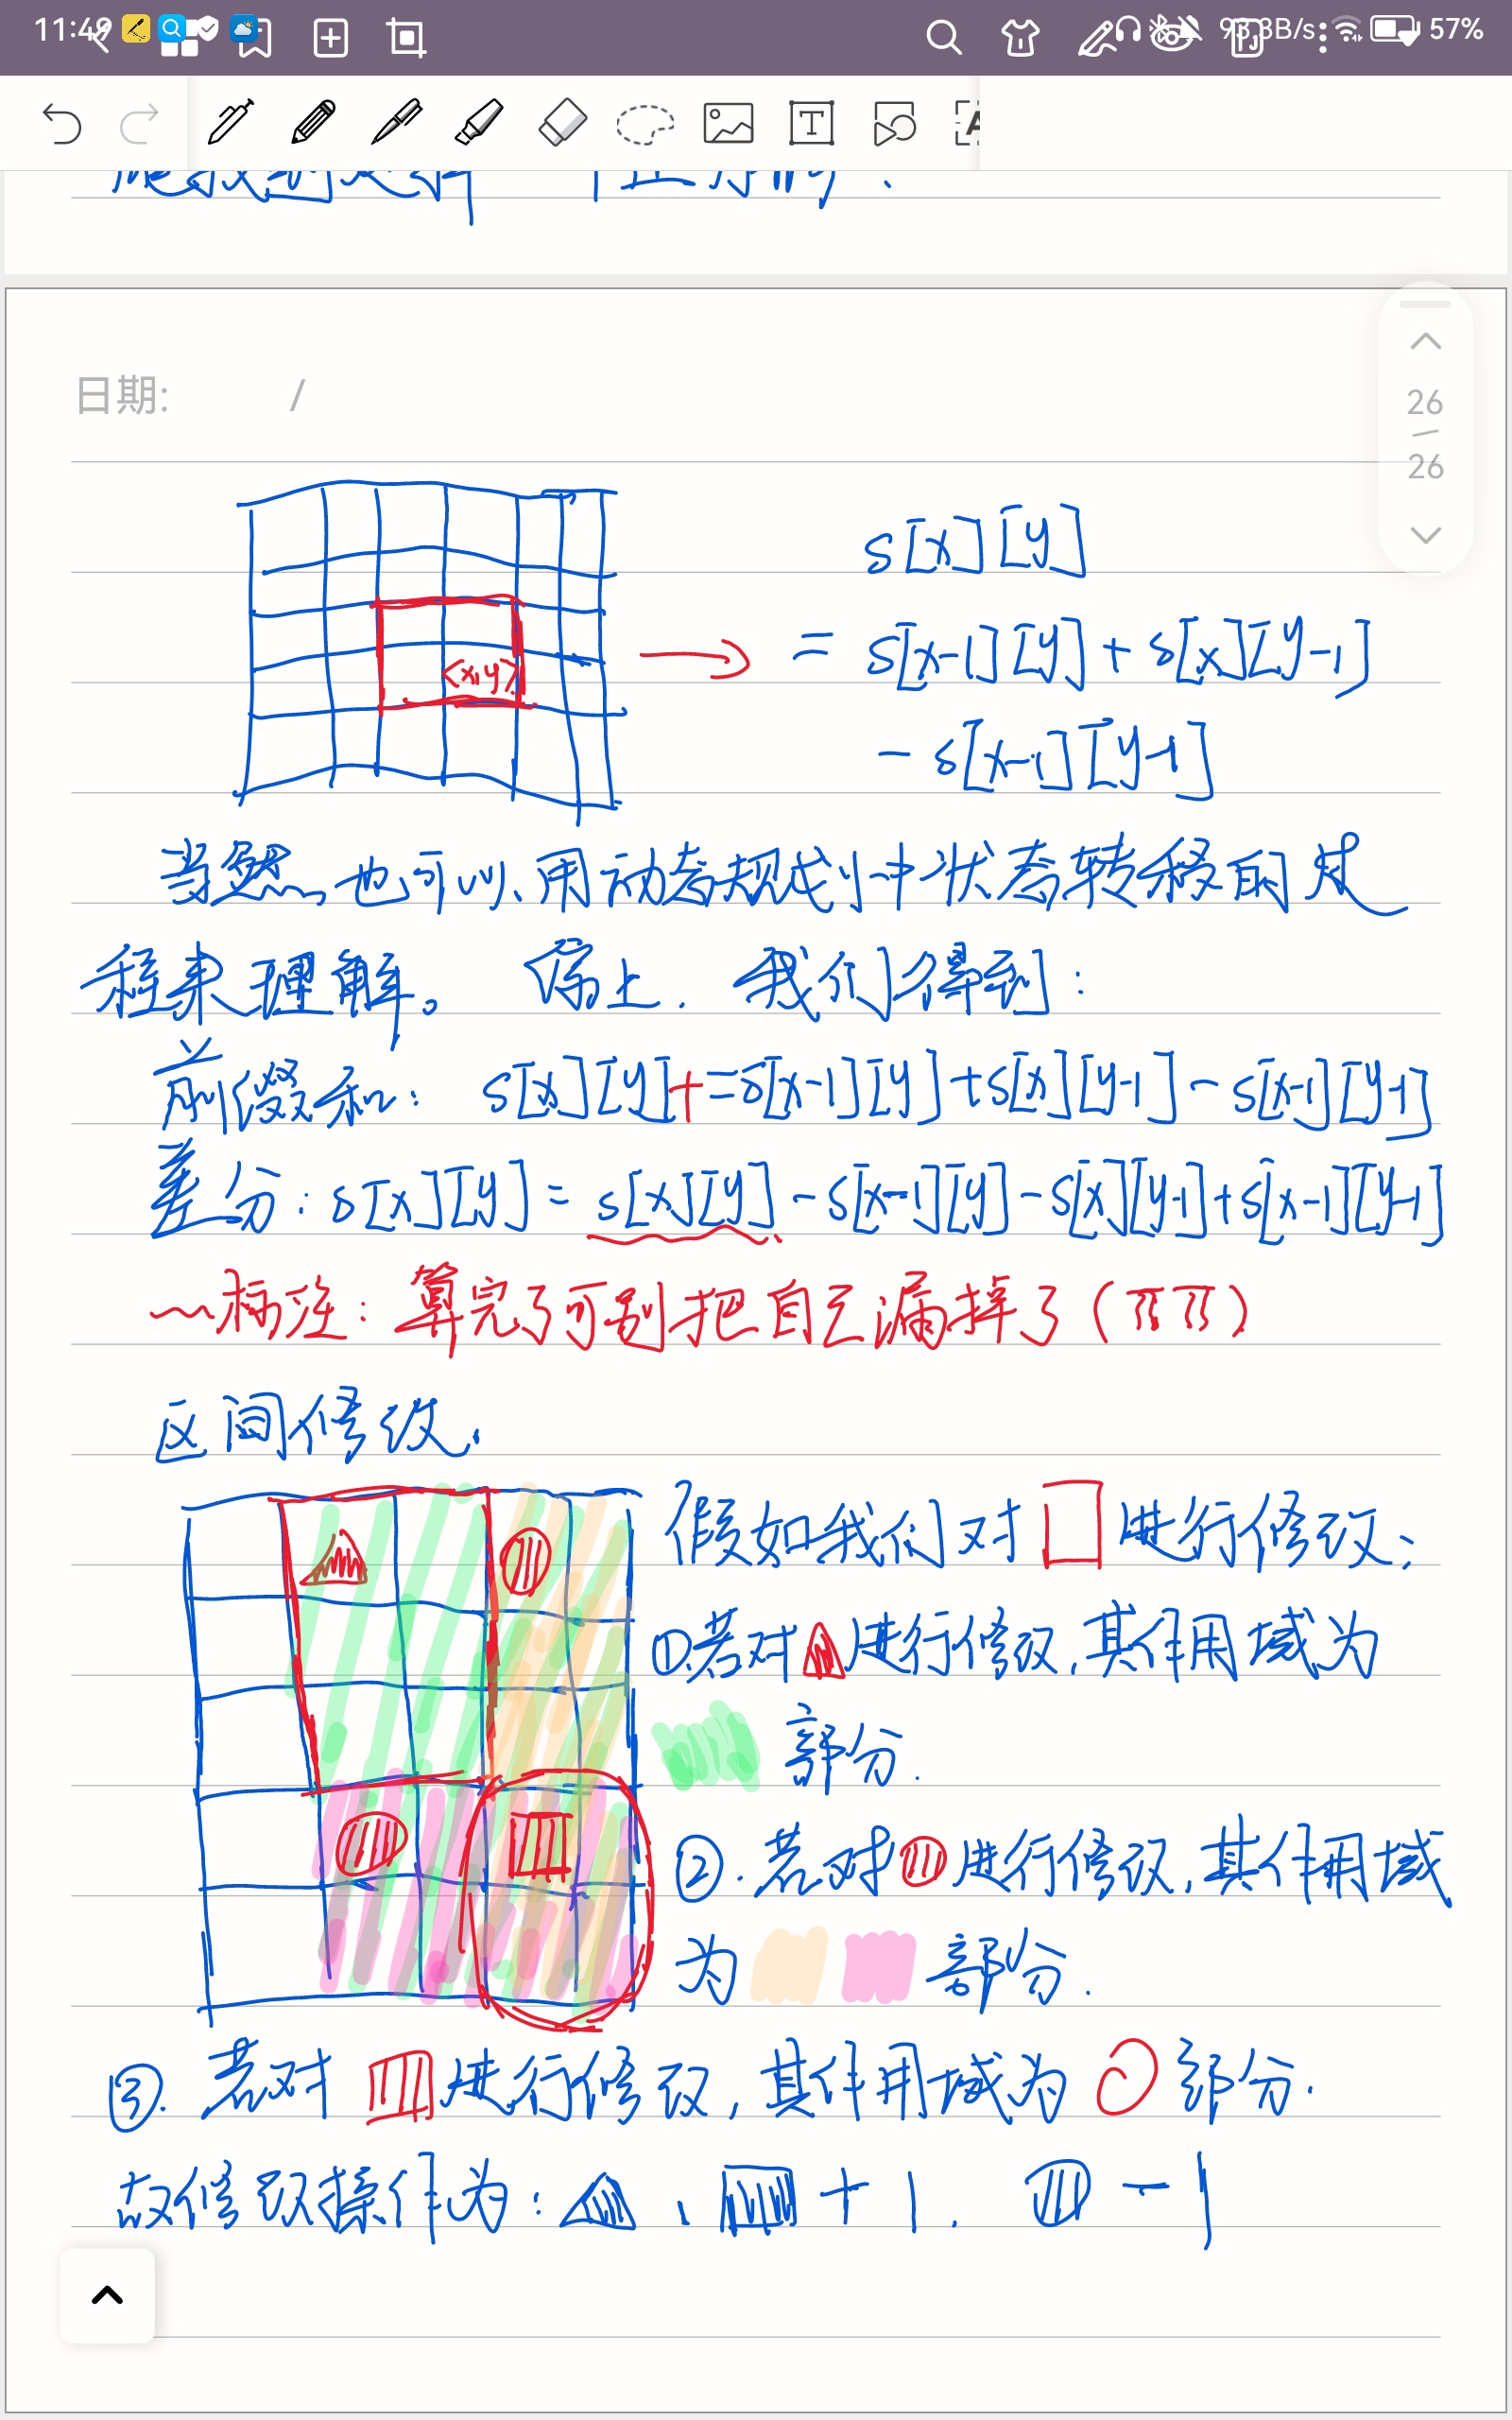 11:49 93.3B/s 57%
日期: /
26
26
s[x][y]
= s[x-1][y] + s[x][y-1]
- s[x-1][y-1]
<x,y>
当然,也可以用动态规划中状态转移的过
程来理解。 综上,我们得到:
前缀和: s[x][y]+=s[x-1][y]+s[x][y-1]-s[x-1][y-1]
差分: s[x][y] = s[x][y]-s[x-1][y]-s[x][y-1]+s[x-1][y-1]
标注: 算完了可别把自己漏掉了(ㅠㅠ)
区间修改.
假如我们对 进行修改:
①.若对 进行修改,其作用域为
部分.
②.若对 进行修改,其作用域
为 部分.
③.若对 进行修改,其作用域为 部分.
故修改操作为: 、 +1. -1